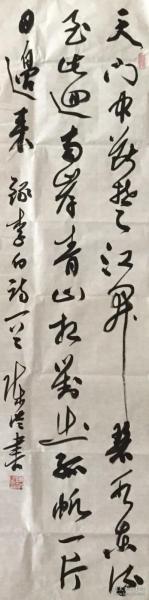 天门中断楚江开碧水东流
至此迴两岸青山相對出孤帆一片
日邊来 録李白诗一首 书